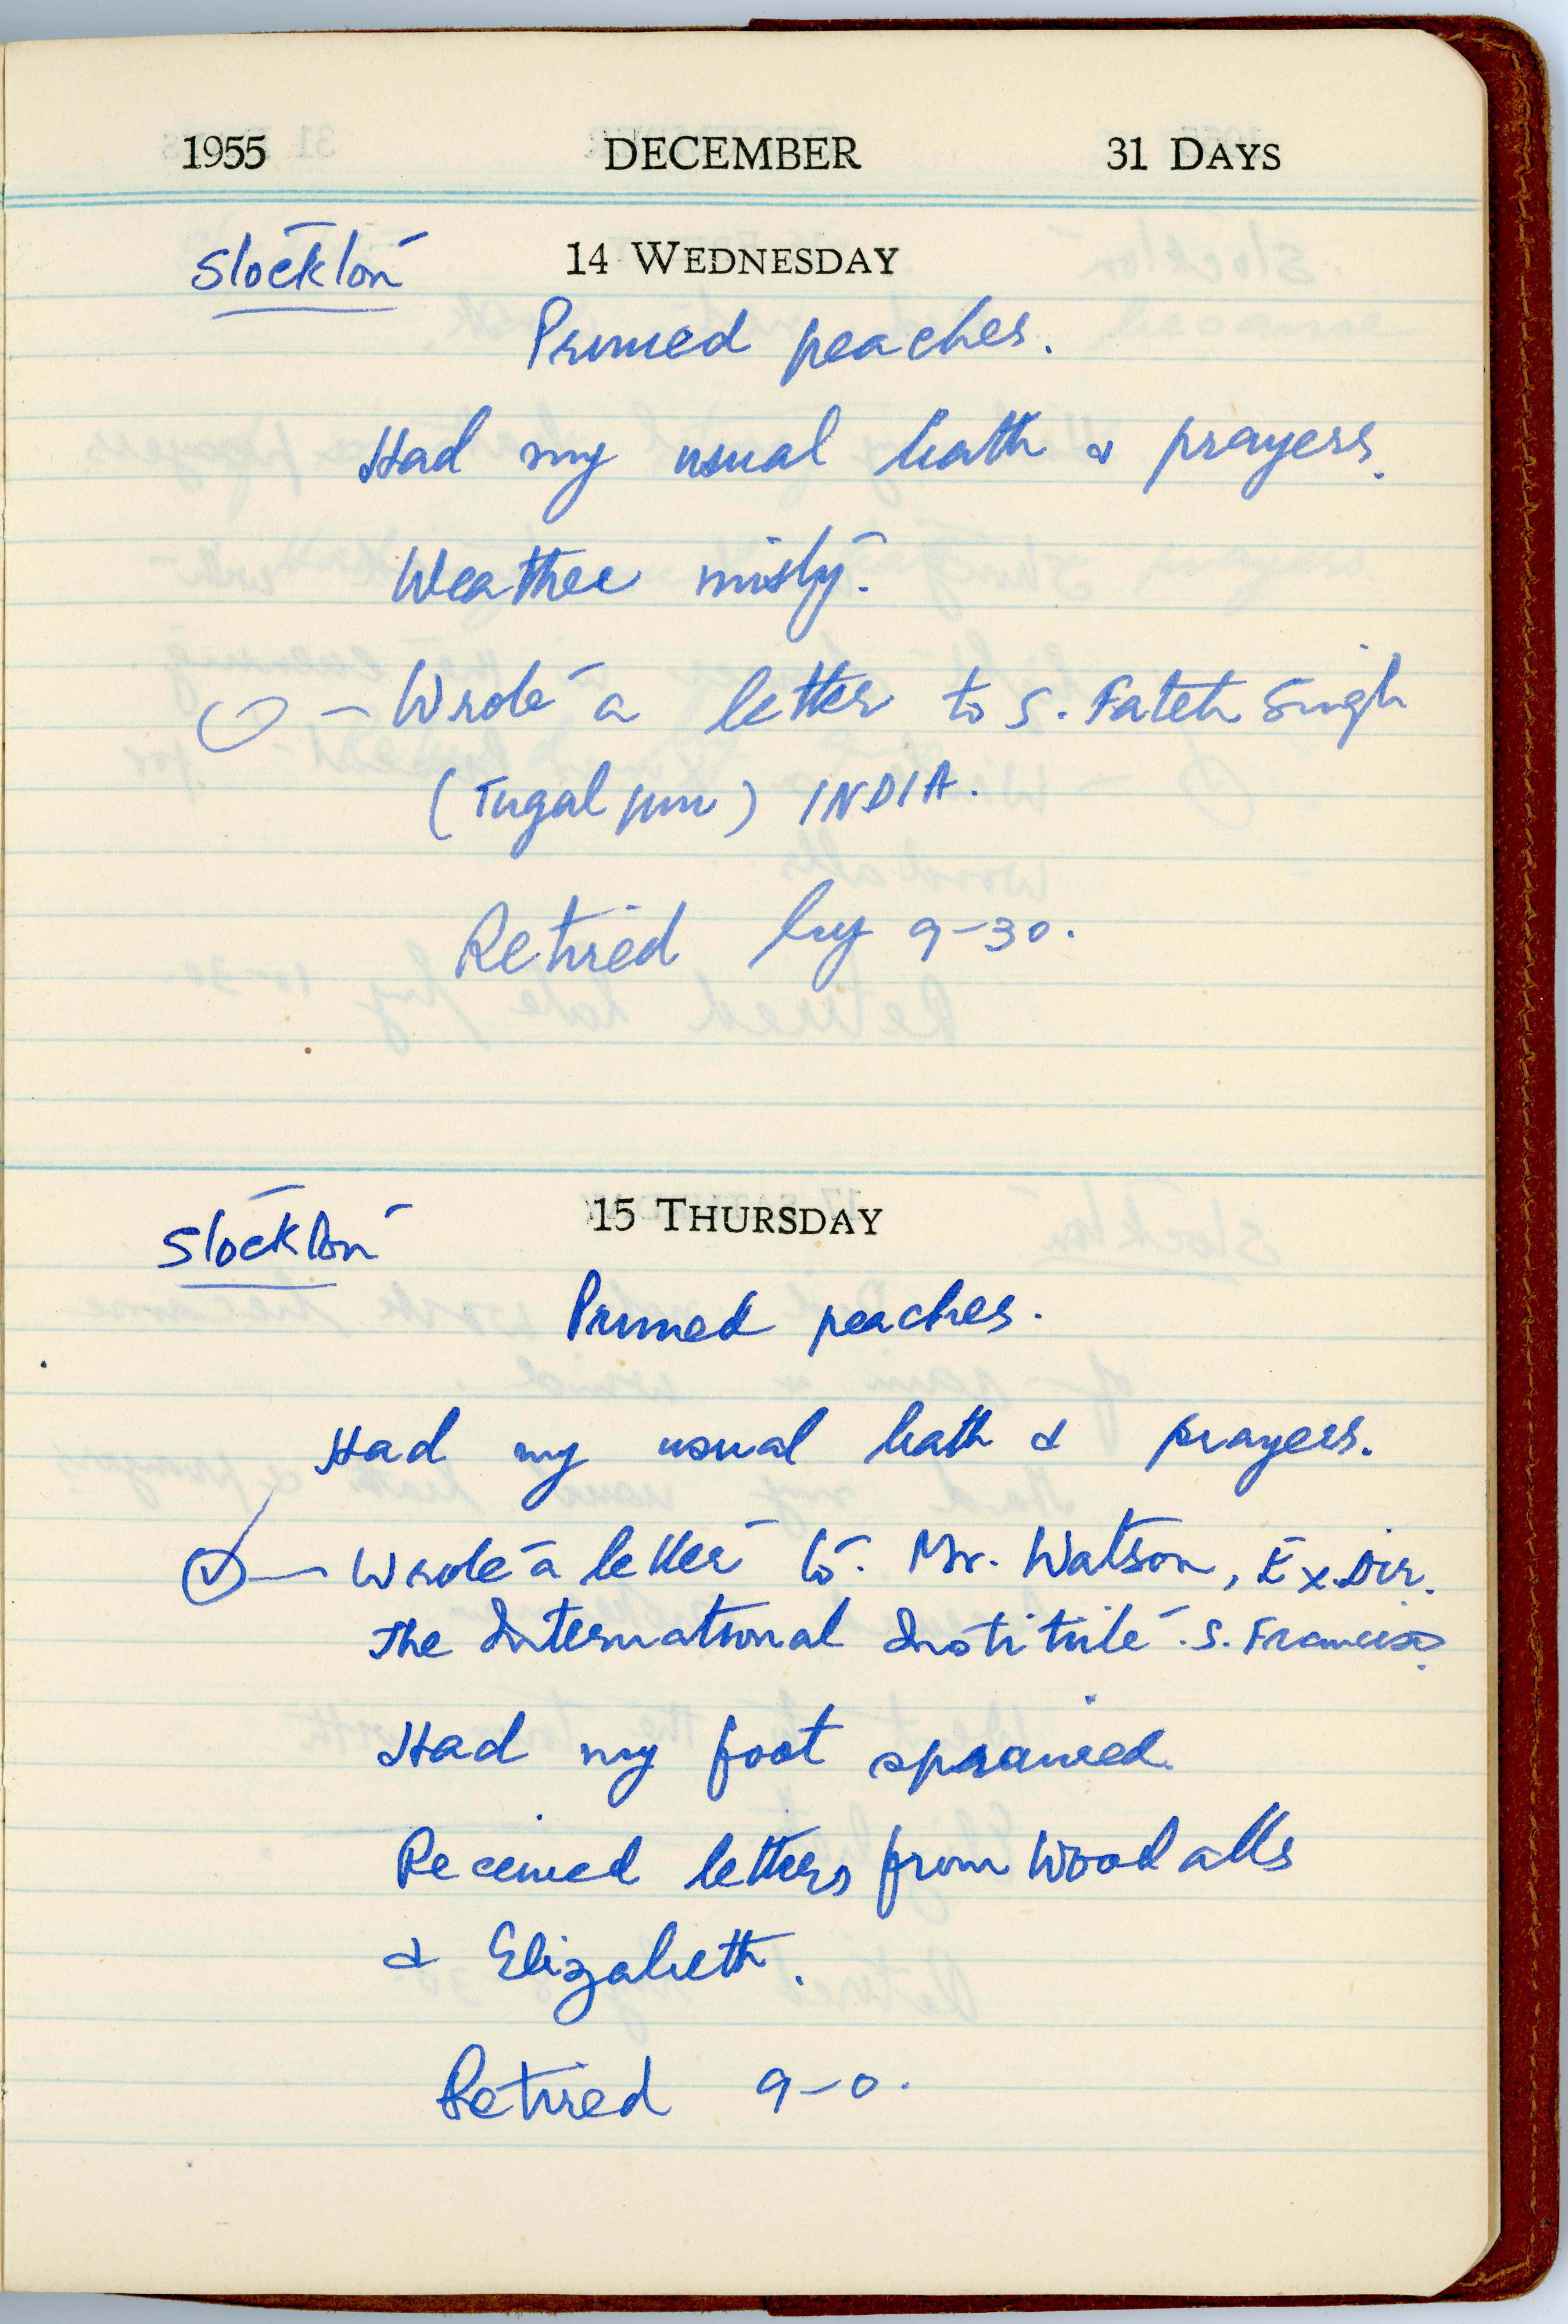 1955 DECEMBER 31 DAYS
Stockton 14 WEDNESDAY
Pruned peaches.
Had my usual bath & prayers.
Weather misty.
— Wrote a letter to S. Fateh Singh
(Tugalpur) INDIA.
Retired by 9-30.
Stockton 15 THURSDAY
Pruned peaches.
Had my usual bath & prayers.
— Wrote a letter to Mr. Watson, Ex. Dir.
The International Institute. S. Francisco.
Had my foot sprained.
Received letters from Woodalls
& Elizabeth.
Retired 9-0.